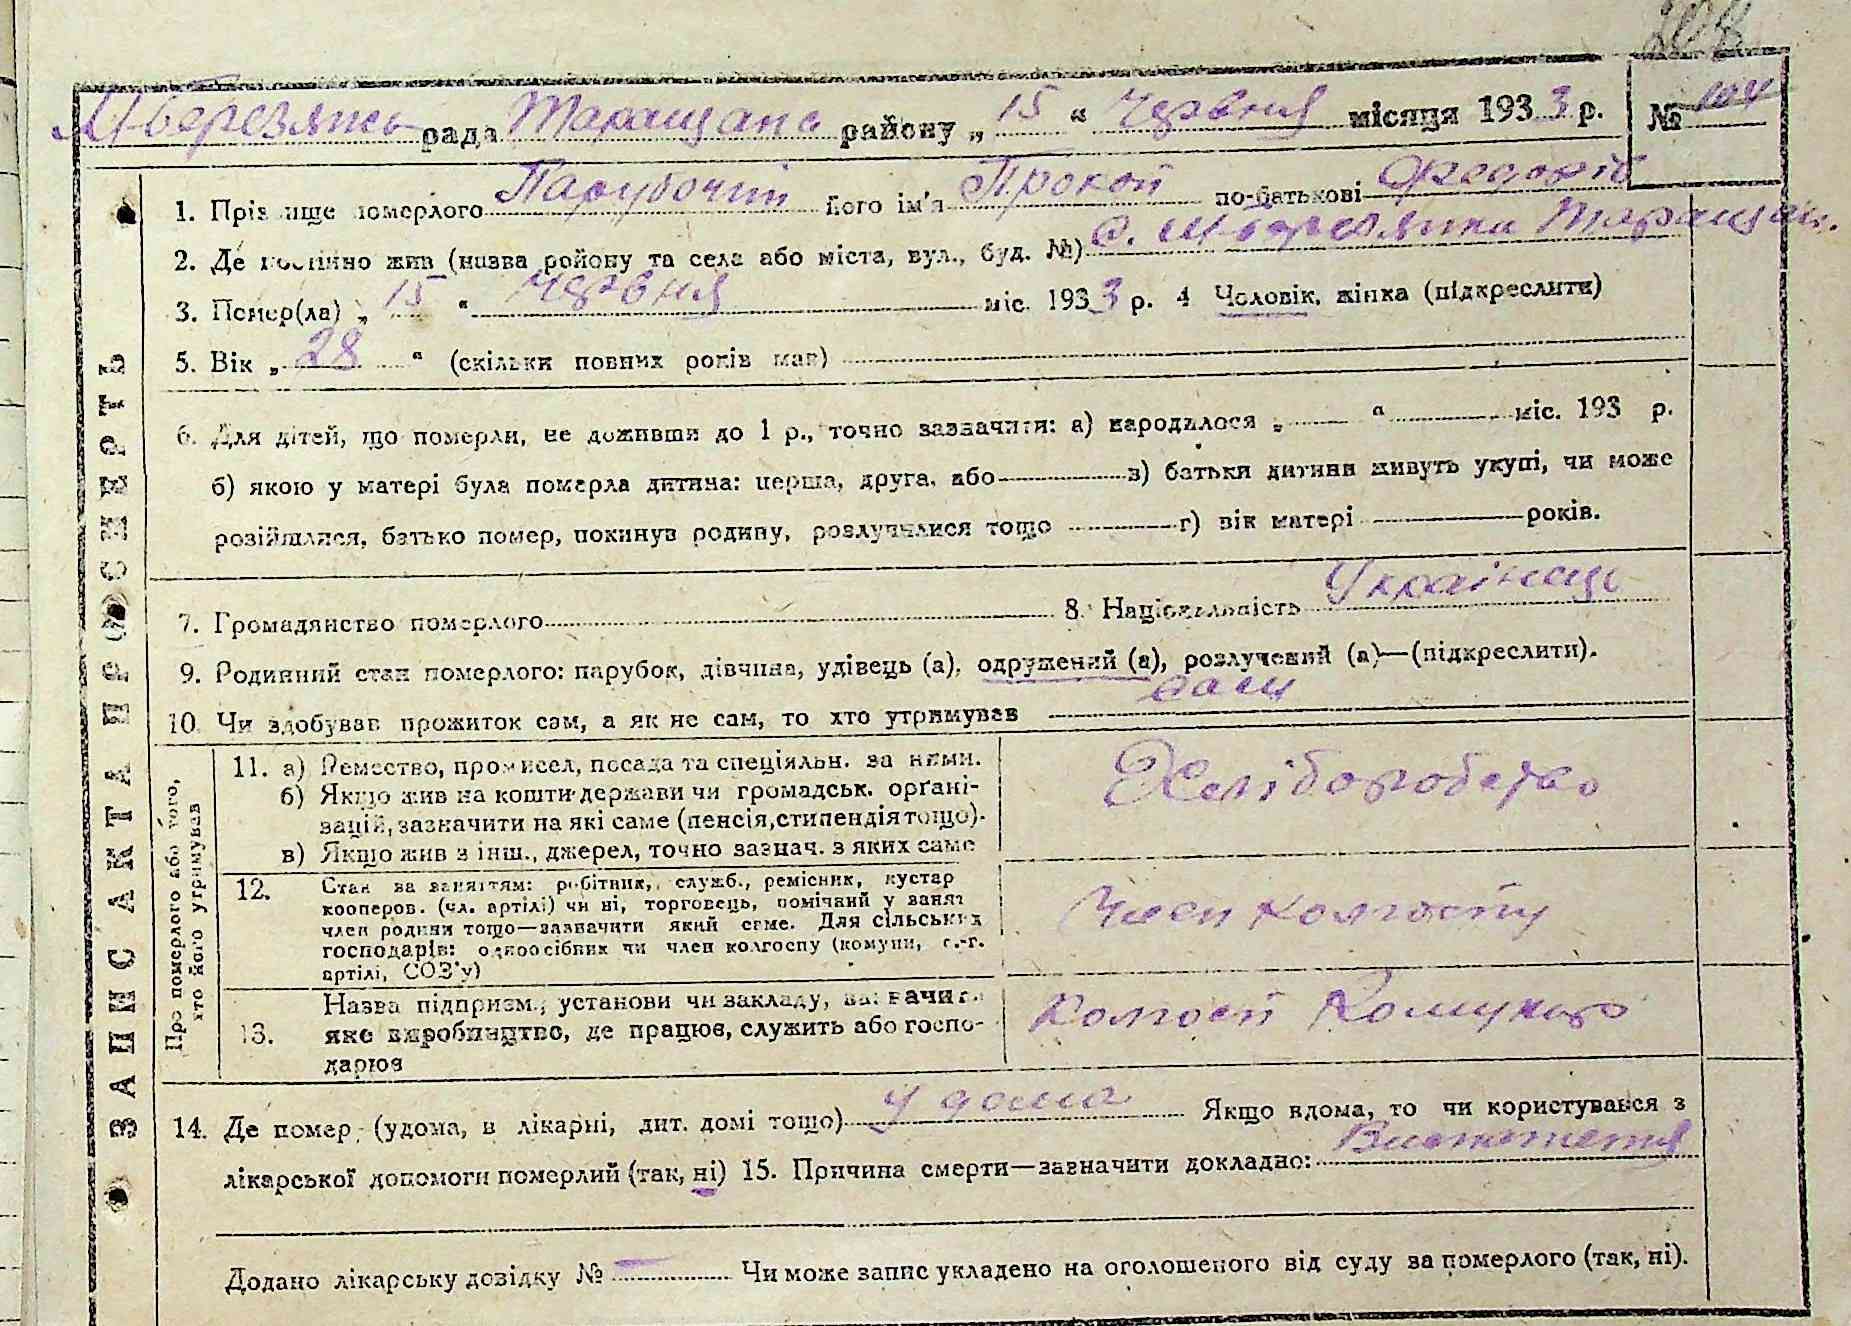 208
М-Березянсь рада Таращансь районy „15“ Червня місяця 1933 р. № 104
ЗАПИС АКТА ПРО СМЕРТЬ
1. Прізвище померлого Парубочий його ім'я Прокоп по-батькові Федорів
2. Де постійно жив (назва району та села або міста, вул., буд. №) с. М березянка Таращан.
3. Помер(ла) „15“ червня міс. 1933 р. 4 Чоловік, жінка (підкреслити)
5. Вік „28“ (скільки повних років мав)
6. Для дітей, що померли, не доживши до 1 р., точно зазначити: а) народилося „ “ міс. 193 р.
б) якою у матері була померла дитина: перша, друга, або в) батьки дитини живуть укупі, чи може
розійшлися, батько помер, покинув родину, розлучилися тощо г) вік матері років.
7. Громадянство померлого 8. Національність Українець
9. Родинний стан померлого: парубок, дівчина, удівець (а), одружений (а), розлучений (а)—(підкреслити).
10. Чи здобував прожиток сам, а як не сам, то хто утримував сам
Про померлого або того, хто його утримував
11. а) Ремество, промисел, посада та спеціяльн. за ними.
б) Якщо жив на кошти державі чи громадськ. органі-
зацій, зазначити на які саме (пенсія, стипендія тощо).
в) Якщо жив з інш., джерел, точно зазнач. з яких саме
Хліборобство
12. Стан за заняттям: робітник, служб., ремісник, кустар
кооперов. (чл. артілі) чи ні, торговець, помічний у занят
член родини тощо—зазначити який саме. Для сільських
господарів: одноосібник чи член колгоспу (комуни, с.-г.
артілі, СОЗ'у)
Член колгоспу
13. Назва підприєм., установи чи закладу, зазначити
яке виробництво, де працює, служить або госпо-
дарює
Колгосп Комунар
14. Де помер (удома, в лікарні, дит. домі тощо) у дома Якщо вдома, то чи користувався з
лікарської допомоги померлий (так, ні) 15. Причина смерти—зазначити докладно: Виснаження
Додано лікарську довідку № — Чи може запис укладено на оголошеного від суду за померлого (так, ні).